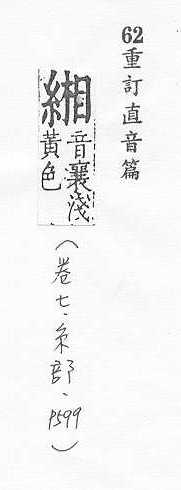 62重訂直音篇
緗音瀼淺黃色
（卷七．糸部．P599）